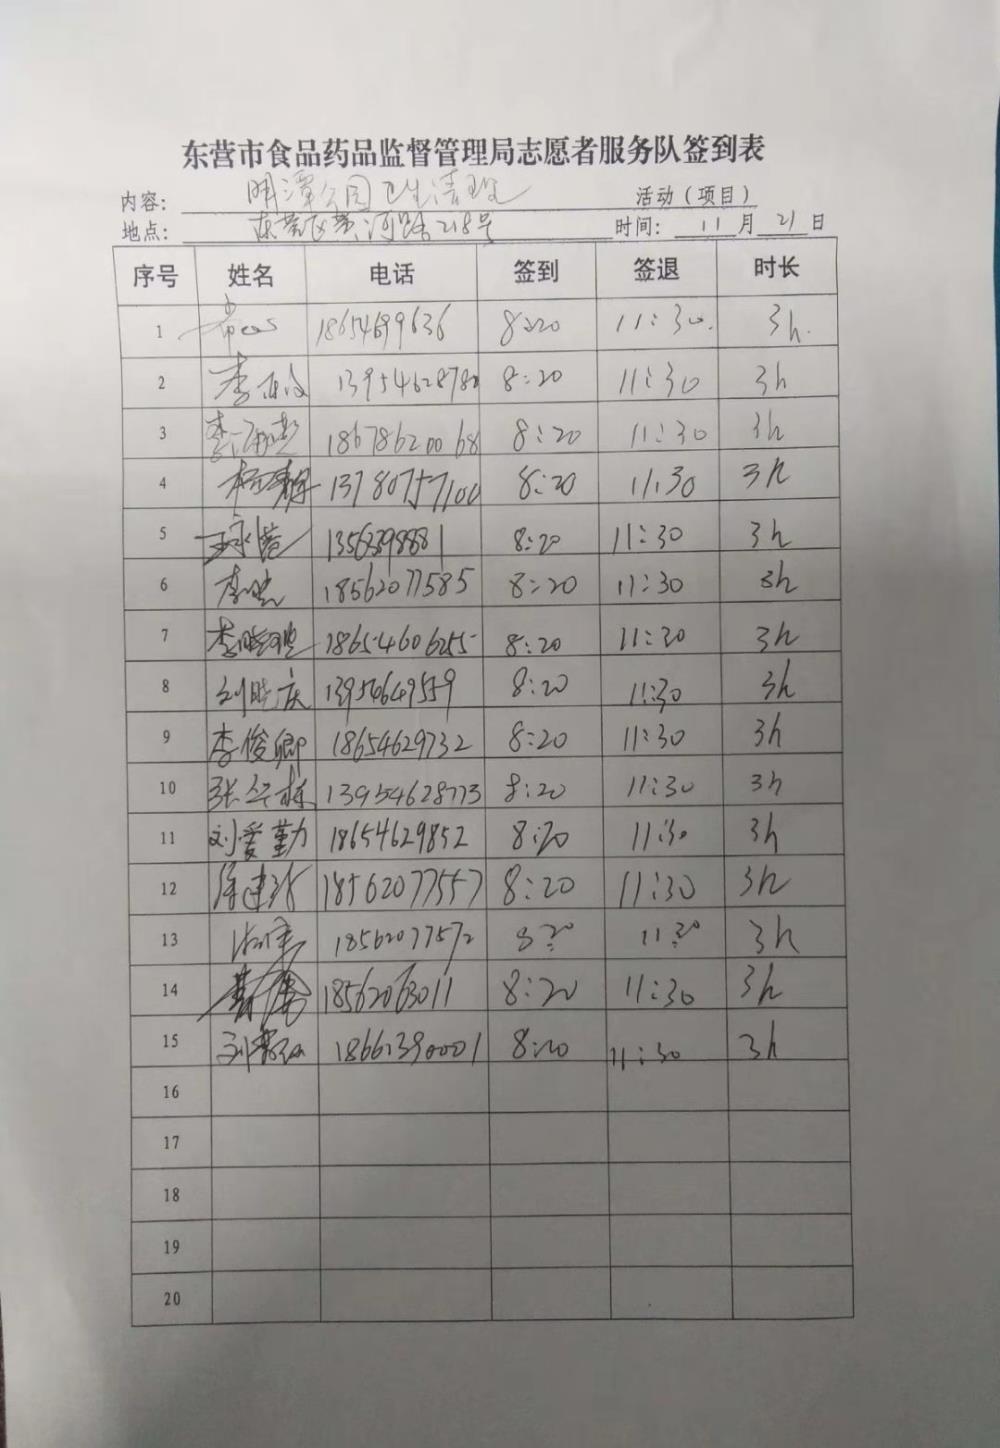 东营市食品药品监督管理局志愿者服务队签到表
内容： 明潭公园卫生清理 活动（项目）
地点： 东营区黄河路218号 时间： 11 月 21 日
序号 姓名 电话 签到 签退 时长
1 18654699636 8:20 11:30 3h
2 李 1395462878 8:20 11:30 3h
3 李 18678620068 8:20 11:30 3h
4 杨 13780757100 8:20 11:30 3h
5 13563998881 8:20 11:30 3h
6 李 18562077585 8:20 11:30 3h
7 李晓 18654606255 8:20 11:30 3h
8 刘晓庆 13954649559 8:20 11:30 3h
9 李俊卿 18654629732 8:20 11:30 3h
10 张 栋 13954628773 8:20 11:30 3h
11 刘爱勤 18654629852 8:20 11:30 3h
12 徐建 18562077557 8:20 11:30 3h
13 18562077572 8:20 11:30 3h
14 18562063011 8:20 11:30 3h
15 刘 18661390001 8:20 11:30 3h
16
17
18
19
20